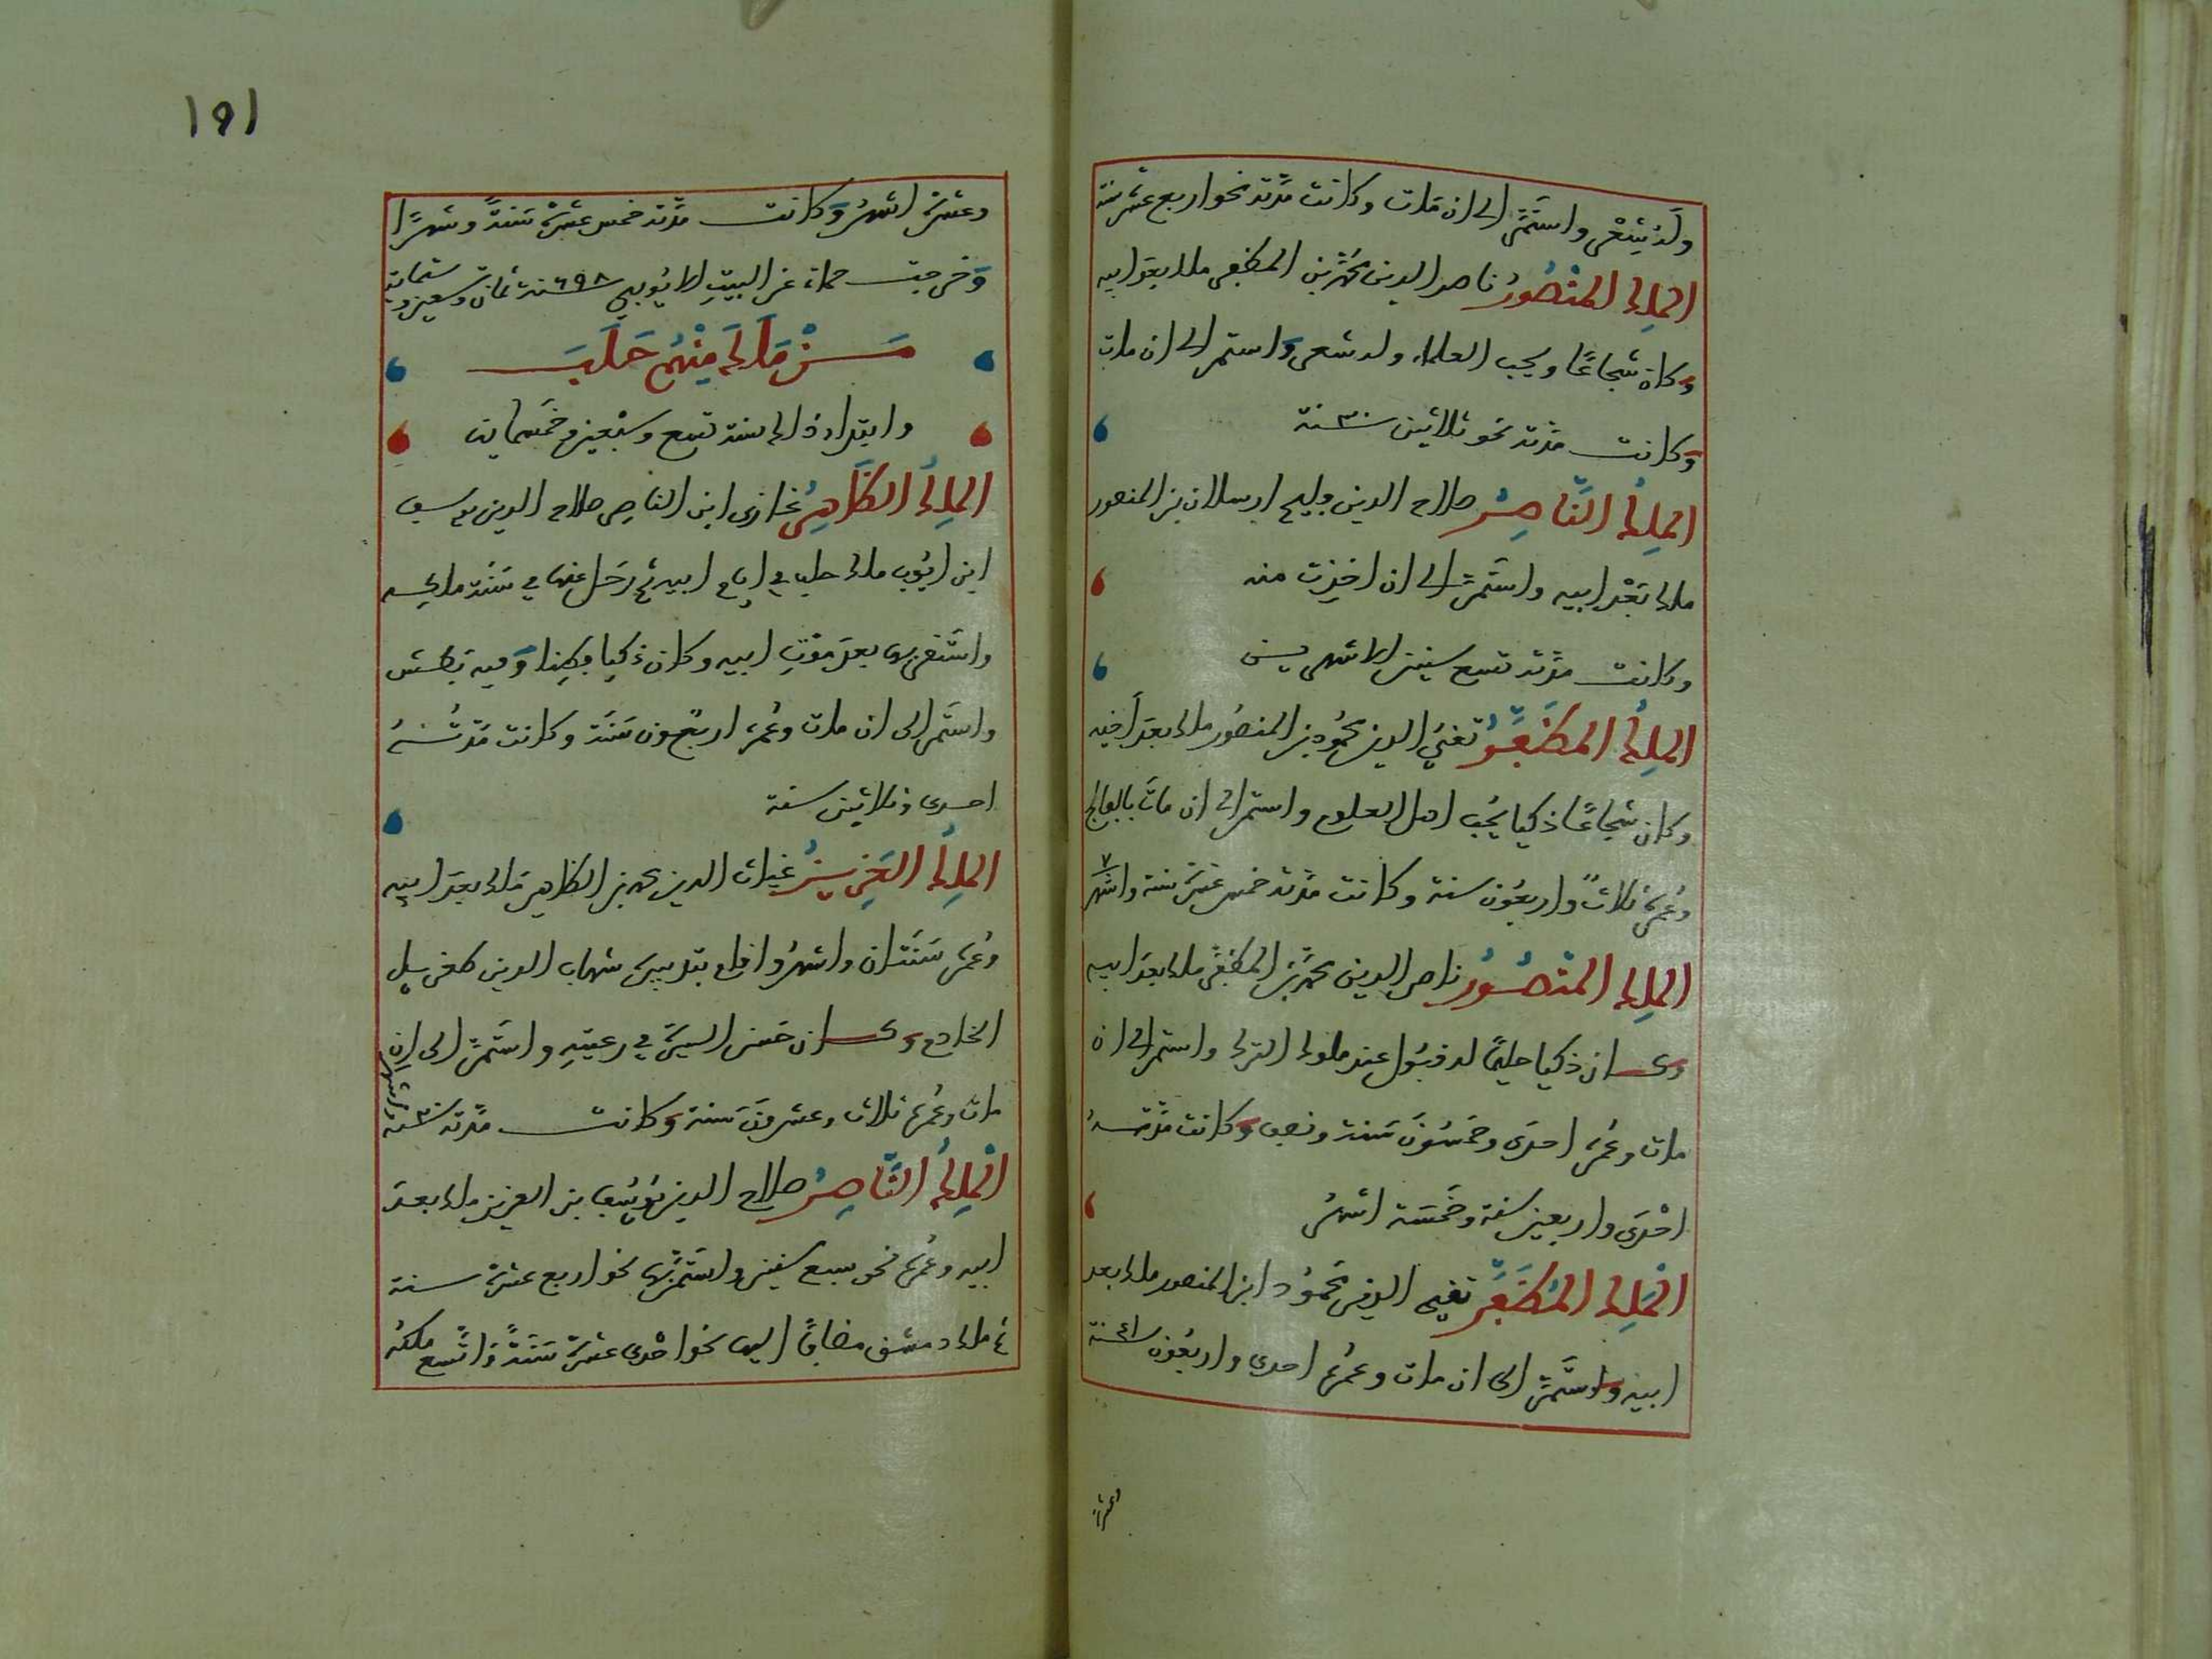 وله شعر واستمر الى ان مات وكانت مدته نحو اربع عشر سنة
الملك المنصور ناصر الدين محمد بن المظفر ملك بعد ابيه
وكان شجاعا ويحب العلماء وله شعر واستمر الى ان مات
وكانت مدته نحو ثلاثين ٣٠ سنة
الملك الناصر صلاح الدين قليج ارسلان بن المنصور
ملك بعد ابيه واستمر الى ان اخذت منه
وكانت مدته تسع سنين الا شهرين
الملك المظفر تقي الدين محمود بن المنصور ملك بعد اخيه
وكان شجاعا ذكيا يحب اهل العلوم واستمر الى ان مات بالفالج
وعمره ثلاث واربعون سنة وكانت مدته خمس عشر سنة واشهر ٧
الملك المنصور ناصر الدين محمد بن المظفر ملك بعد ابيه
وكان ذكيا حليما له قبول عند ملوك الترك واستمر الى ان
مات وعمره احدى وخمسون سنة ونصف وكانت مدته
احدى واربعين سنة وخمسة اشهر
الملك المظفر تقي الدين محمود ابن المنصور ملك بعد
ابيه واستمر الى ان مات وعمره احدى واربعون ٤١ سنة
وعشرة
١٩١
وعشرة اشهر وكانت مدته خمس عشرة سنة وشهرا
وخرجت حماه عن البيت الايوبي ٦٩٨ سنة ثمان وتسعين وستماية
من ملك منهم حلب
وابتداء ذلك سنة تسع وسبعين وخمسماية
الملك الظاهر غازي ابن الناصر صلاح الدين يوسف
ابن ايوب ملك حلب في ايام ابيه ثم رحل عنها في سنة ملكه
واستقر بها بعد موت ابيه وكان ذكيا فطنا وفيه بطش
واستمر الى ان مات وعمره اربعون سنة وكانت مدته
احدى وثلاثين سنة
الملك العزيز غياث الدين محمد بن الظاهر ملك بعد ابيه
وعمره سنتان واشهر واقام بتدبيره شهاب الدين طغريل
الخادم وكان حسن السيرة في رعيته واستمر الى ان
مات وعمره ثلاث وعشرون سنة وكانت مدته ٢٠ سنة واشهر
الملك الناصر صلاح الدين يوسف بن العزيز ملك بعد
ابيه وعمره نحو سبع سنين واستمر بها نحو اربع عشرة سنة
ثم ملك دمشق مضافا اليها نحو احدى عشرة سنة واتسع ملكه